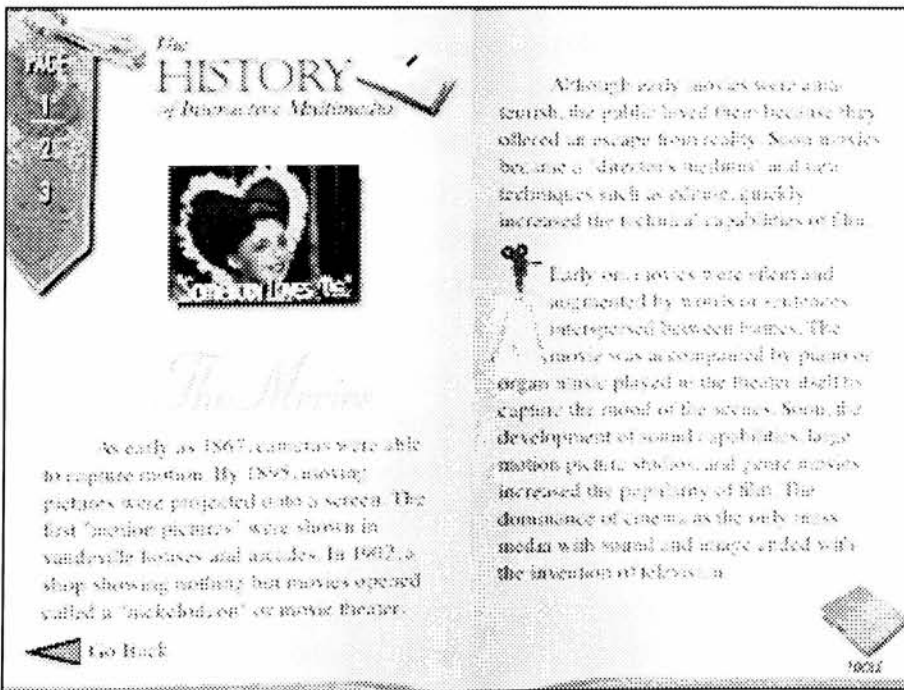 PAGE
1
2
3
The
HISTORY
of Interactive Multimedia
"Somebody Loves Me"
The Movies
As early as 1867, cameras were able
to capture motion. By 1895, moving
pictures were projected onto a screen. The
first "motion pictures" were shown in
vaudeville houses and arcades. In 1902, a
shop showing nothing but movies opened
called a "nickelodeon" or movie theater.
Go Back
Although early movies were ama-
teurish, the public loved them because they
offered an escape from reality. Soon movies
became a "director's medium" and new
techniques such as editing, quickly
increased the technical capabilities of film.
Early on, movies were silent and
augmented by words or sentences
interspersed between frames. The
movie was accompanied by piano or
organ music played in the theater itself to
capture the mood of the scenes. Soon, the
development of sound capabilities, large
motion picture studios, and genre movies
increased the popularity of film. The
dominance of cinema as the only mass
media with sound and image ended with
the invention of television.
TOOLS